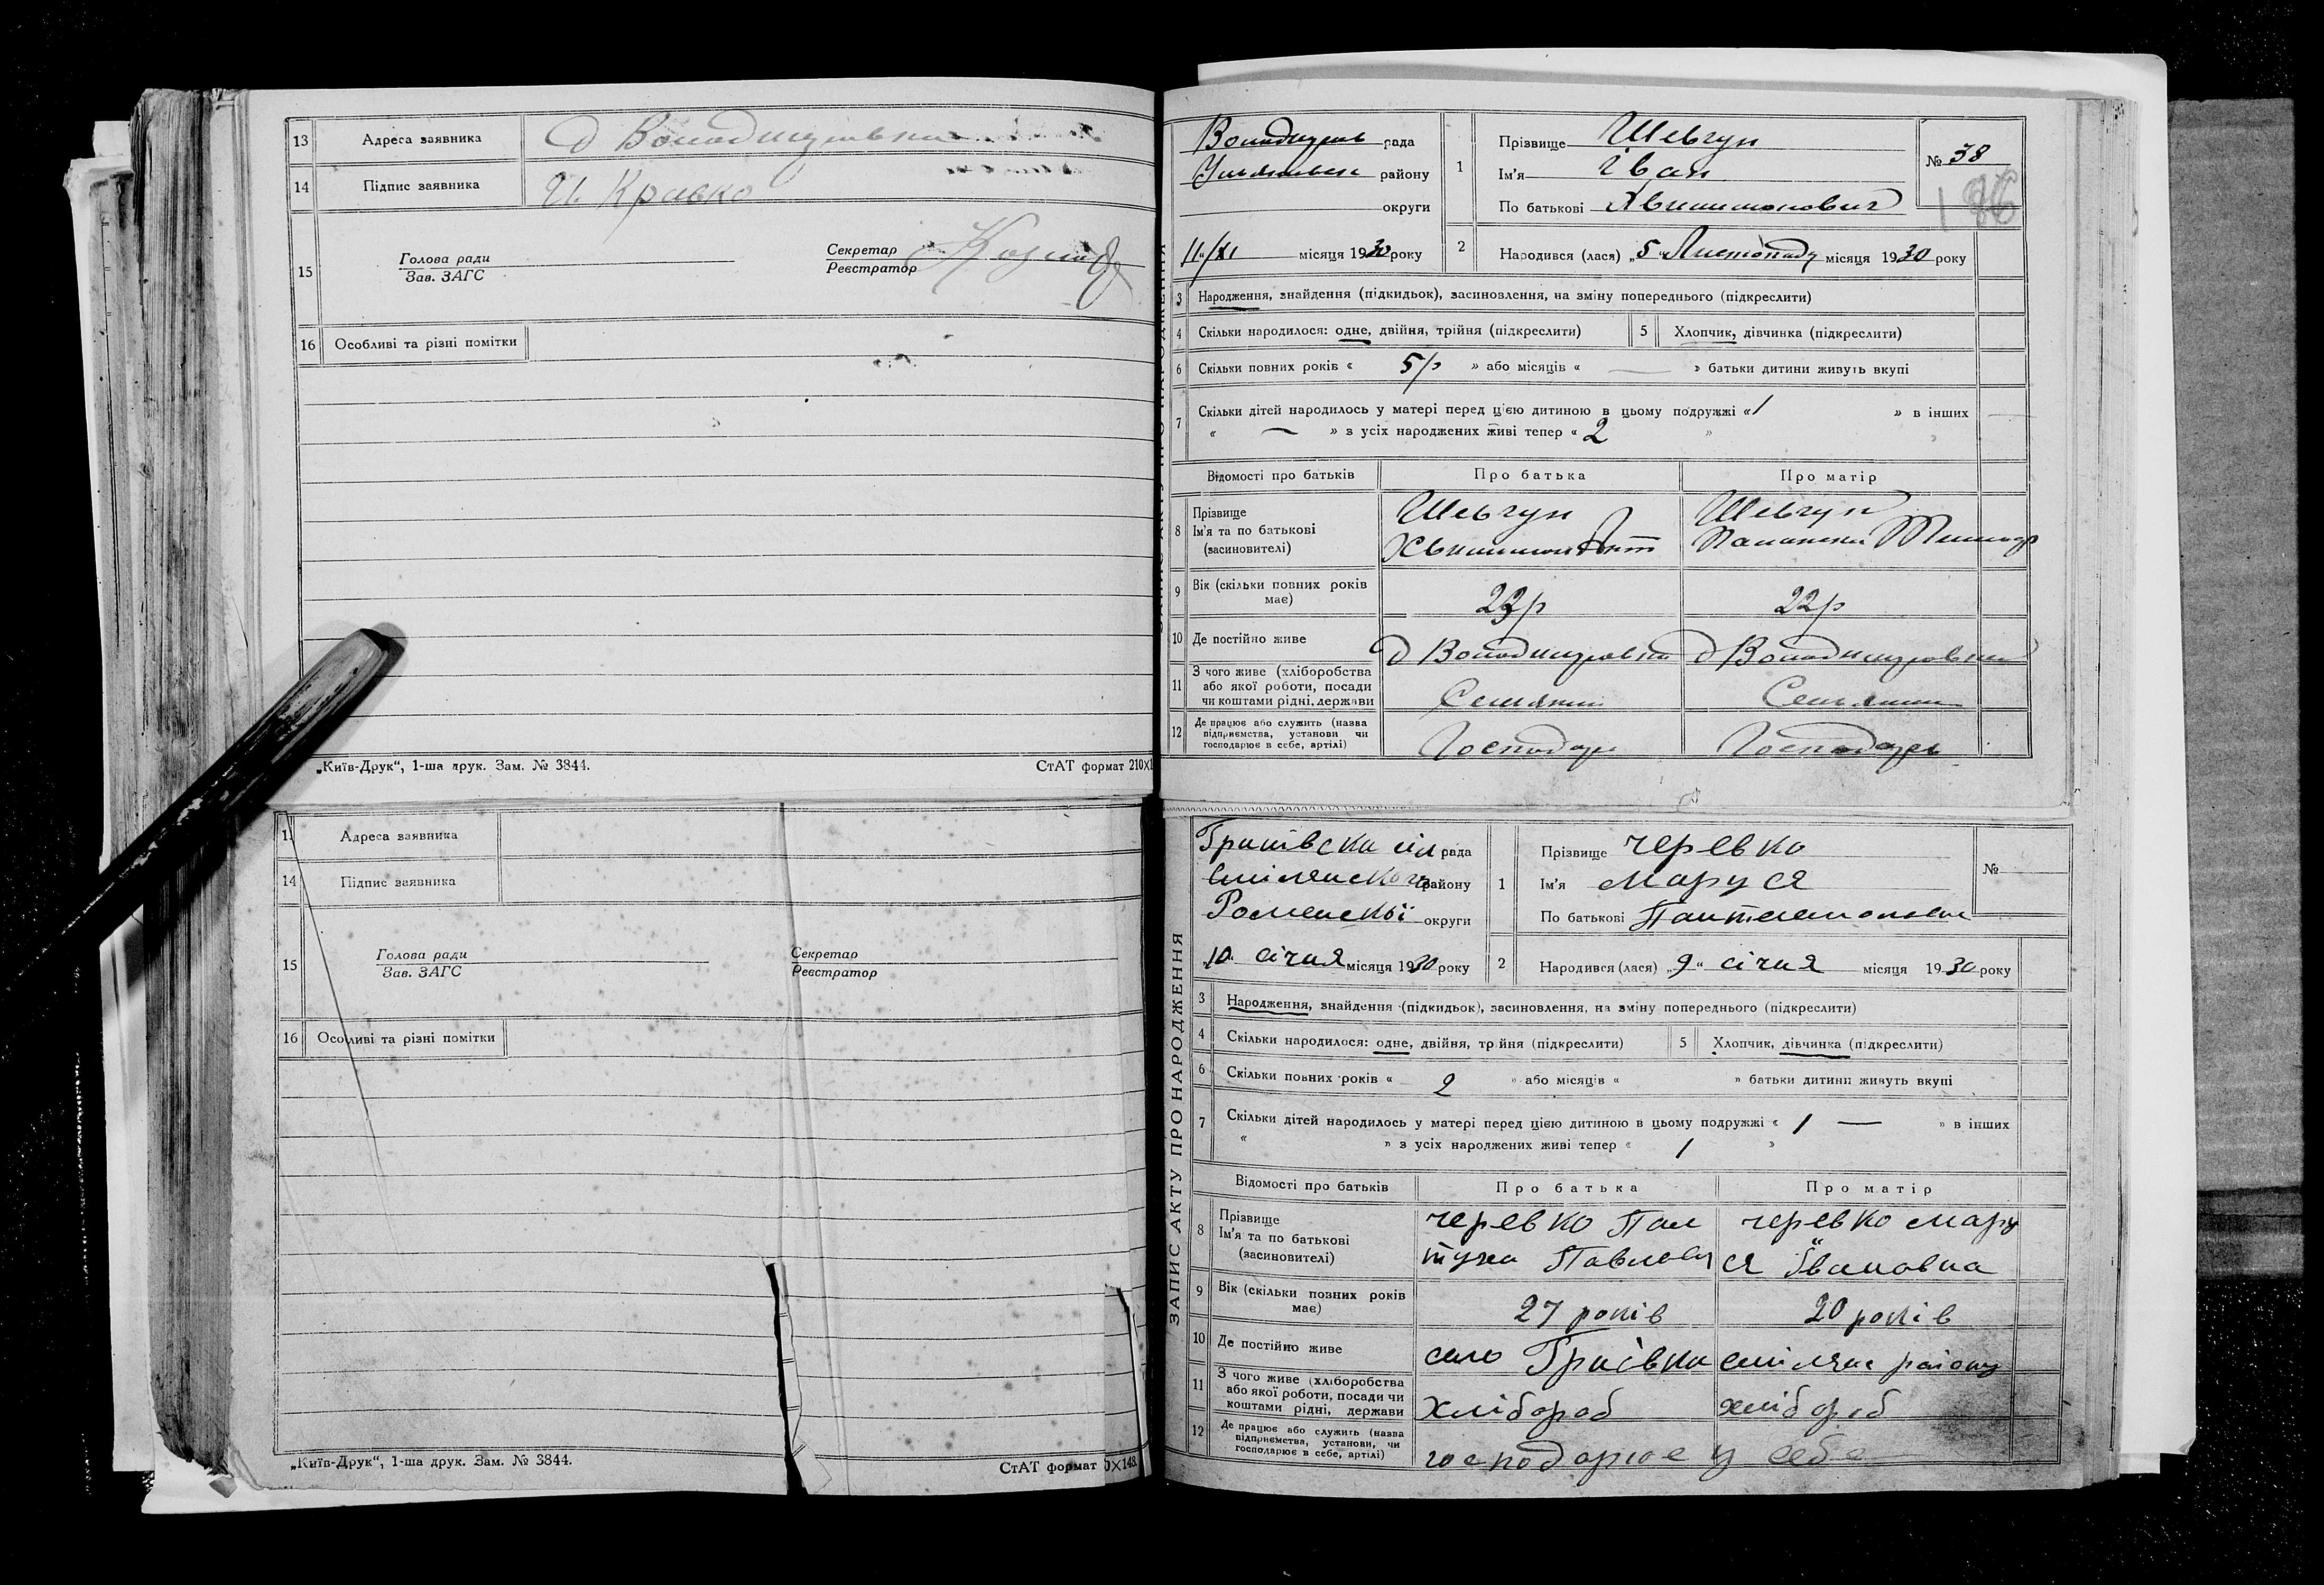 13 Адреса заявника
14 Підпис заявника И. Кравко
15 Голова ради
Зав. ЗАГС
Секретар
Реєстратор
16 Особливі та різні помітки
„Київ-Друк“, 1-ша друк. Зам. № 3844.
СтАТ формат 210×1
рада
району
округи
11/XI місяця 1930 року
1 Прізвище Шевчун
Ім'я Іван
По батькові
№ 38
2 Народився (лася) „5“ Листопаду місяця 1930 року
3 Народження, знайдення (підкидьок), засиновлення, на зміну попереднього (підкреслити)
4 Скільки народилося: одне, двійня, трійня (підкреслити)
5 Хлопчик, дівчинка (підкреслити)
6 Скільки повних років « 5 р » або місяців « — » батьки дитини живуть вкупі
7 Скільки дітей народилось у матері перед цією дитиною в цьому подружжі « 1 » в інших
« — » з усіх народжених живі тепер « 2 »
Відомості про батьків Про батька Про матір
8 Прізвище
Ім'я та по батькові
(засиновителі)
Шевчун
Шевчун
9 Вік (скільки повних років
має)
23 р
22 р
10 Де постійно живе
11 З чого живе (хліборобства
або якої роботи, посади
чи коштами рідні, держави
12 Де працює або служить (назва
підприємства, установи чи
господарює в себе, артілі)
Господар
Господарь
1. Адреса заявника
14 Підпис заявника
15 Голова ради
Зав. ЗАГС
Секретар
Реєстратор
16 Особливі та різні помітки
„Київ-Друк“, 1-ша друк. Зам. № 3844.
СтАТ формат 0×148.
ЗАПИС АКТУ ПРО НАРОДЖЕННЯ
рада
району
округи
„10“ січня місяця 1930 року
1 Прізвище Черевко
Ім'я Маруся
По батькові
№
2 Народився (лася) „9“ січня місяця 1930 року
3 Народження, знайдення (підкидьок), засиновлення, на зміну попереднього (підкреслити)
4 Скільки народилося: одне, двійня, трійня (підкреслити)
5 Хлопчик, дівчинка (підкреслити)
6 Скільки повних років « 2 » або місяців « » батьки дитини живуть вкупі
7 Скільки дітей народилось у матері перед цією дитиною в цьому подружжі « 1 — » в інших
« » з усіх народжених живі тепер « 1 »
Відомості про батьків Про батька Про матір
8 Прізвище
Ім'я та по батькові
(засиновителі)
черевко
черевко мару
ся Івановна
9 Вік (скільки повних років
має)
27 років
20 років
10 Де постійно живе
село
району
11 З чого живе (хліборобства
або якої роботи, посади чи
коштами рідні, держави
хлібороб
хлібороб
12 Де працює або служить (назва
підприємства, установи, чи
господарює в себе, артілі)
господарює у себе